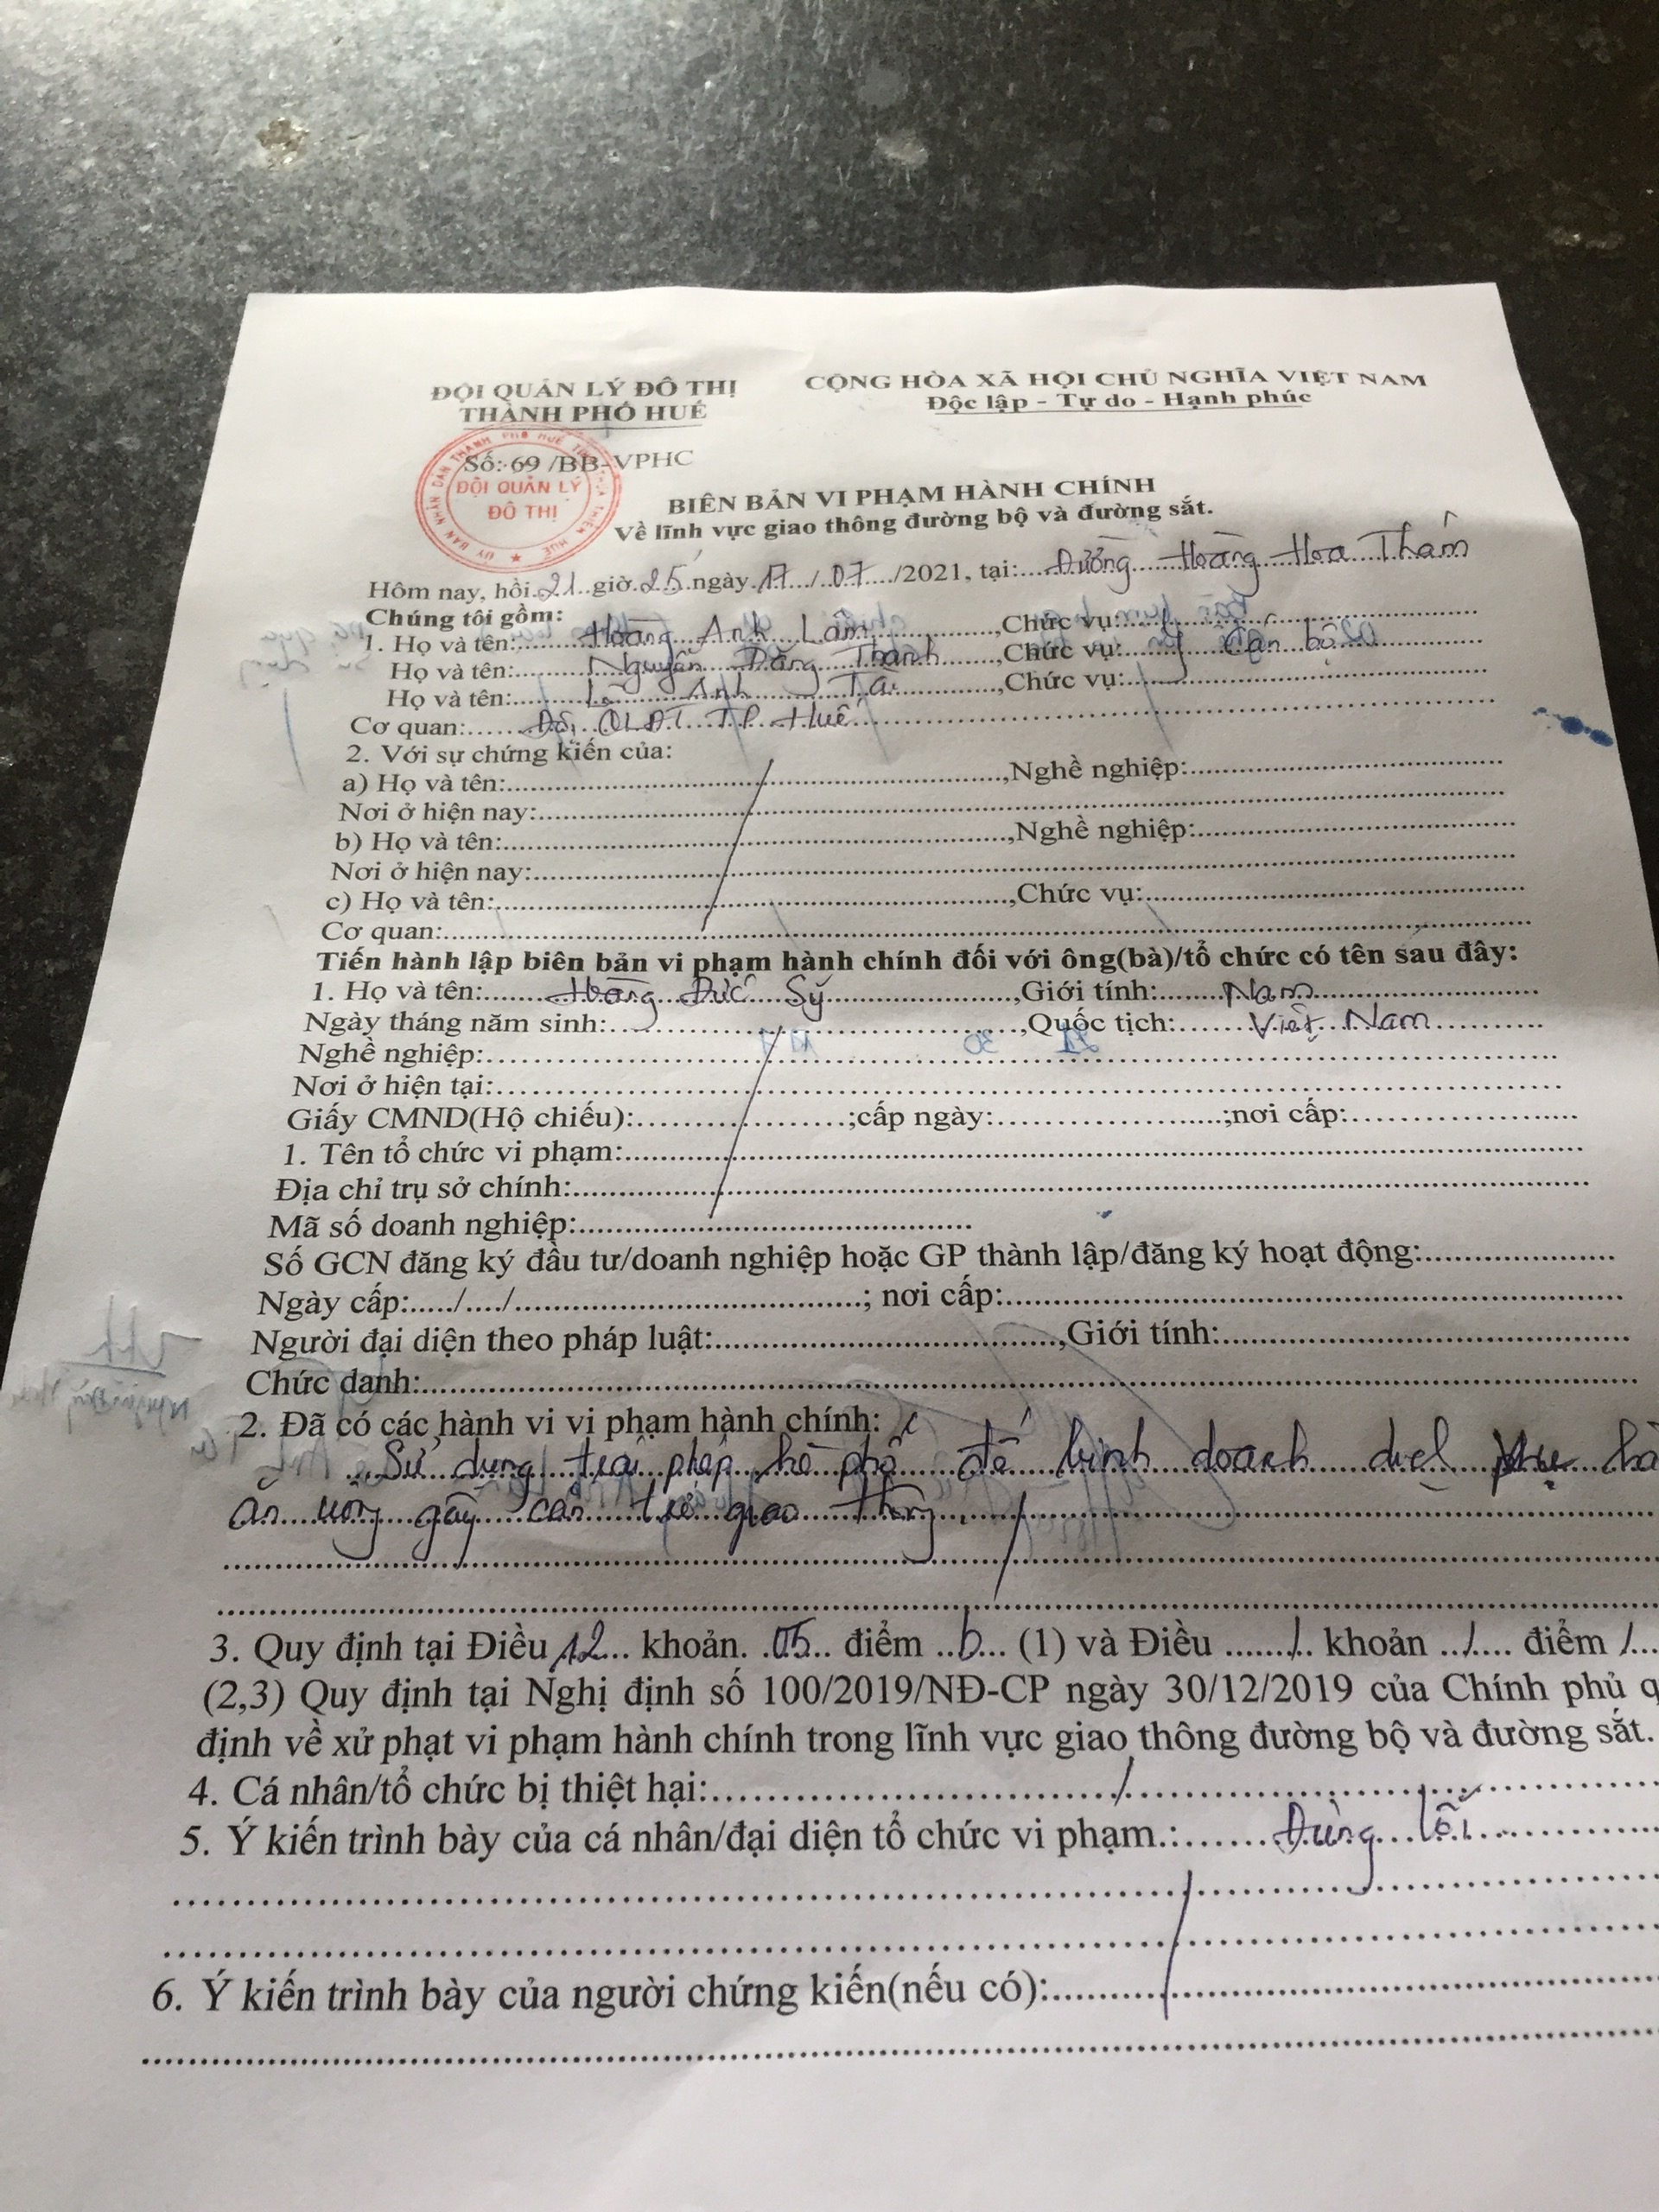 ĐỘI QUẢN LÝ ĐÔ THỊ
THÀNH PHỐ HUẾ
CỘNG HÒA XÃ HỘI CHỦ NGHĨA VIỆT NAM
Độc lập - Tự do - Hạnh phúc
Số: 69 /BB-VPHC
ỦY BAN NHÂN DÂN THÀNH PHỐ HUẾ TỈNH THỪA THIÊN HUẾ
ĐỘI QUẢN LÝ
ĐÔ THỊ
BIÊN BẢN VI PHẠM HÀNH CHÍNH
Về lĩnh vực giao thông đường bộ và đường sắt.
Hôm nay, hồi 21 giờ 25 ngày 17 / 07 /2021, tại: Đường Hoàng Hoa Thám
Chúng tôi gồm:
1. Họ và tên: Hoàng Anh Lâm ,Chức vụ:
Họ và tên: Nguyễn Đăng Thành ,Chức vụ: Cán bộ
Họ và tên: Lê Anh Tài ,Chức vụ:
Cơ quan: Đội QLĐT TP Huế
2. Với sự chứng kiến của:
a) Họ và tên: ,Nghề nghiệp:
Nơi ở hiện nay:
b) Họ và tên: ,Nghề nghiệp:
Nơi ở hiện nay:
c) Họ và tên: ,Chức vụ:
Cơ quan:
Tiến hành lập biên bản vi phạm hành chính đối với ông(bà)/tổ chức có tên sau đây:
1. Họ và tên: Hoàng Đức Sỹ ,Giới tính: Nam
Ngày tháng năm sinh: ,Quốc tịch: Việt Nam
Nghề nghiệp:
Nơi ở hiện tại:
Giấy CMND(Hộ chiếu): ;cấp ngày: ;nơi cấp:
1. Tên tổ chức vi phạm:
Địa chỉ trụ sở chính:
Mã số doanh nghiệp:
Số GCN đăng ký đầu tư/doanh nghiệp hoặc GP thành lập/đăng ký hoạt động:
Ngày cấp:...../..../ ; nơi cấp:
Người đại diện theo pháp luật: ,Giới tính:
Chức danh:
2. Đã có các hành vi vi phạm hành chính:
Sử dụng trái phép hè phố để kinh doanh
ăn uống gây cản trở giao thông
3. Quy định tại Điều 12 khoản 05 điểm b (1) và Điều / khoản / điểm /
(2,3) Quy định tại Nghị định số 100/2019/NĐ-CP ngày 30/12/2019 của Chính phủ q
định về xử phạt vi phạm hành chính trong lĩnh vực giao thông đường bộ và đường sắt.
4. Cá nhân/tổ chức bị thiệt hại: /
5. Ý kiến trình bày của cá nhân/đại diện tổ chức vi phạm.: Đúng lỗi
6. Ý kiến trình bày của người chứng kiến(nếu có):